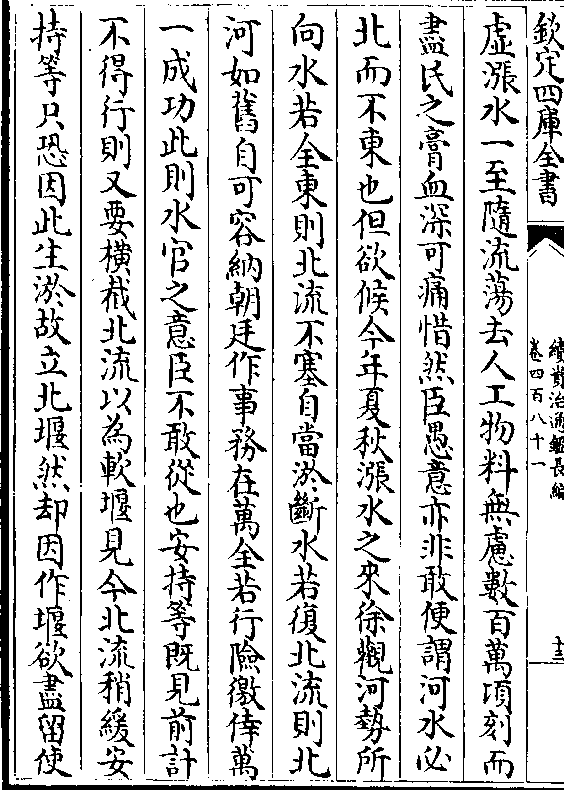 欽定四庫全書
續資治通鑑長編
卷四百八十一
十三
虚漲水一至隨流蕩去人工物料無慮數百萬頃刻而
盡民之膏血深可痛惜然臣愚意亦非敢便謂河水必
北而不東也但欲候今年夏秋漲水之來徐觀河勢所
向水若全東則北流不塞自當淤斷水若復北流則北
河如舊自可容納朝廷作事務在萬全若行險徼倖萬
一成功此則水官之意臣不敢從也安持等既見前計
不得行則又要橫截北流以為軟堰見今北流稍緩安
持等只恐因此生淤故立北堰然却因作堰欲盡留使